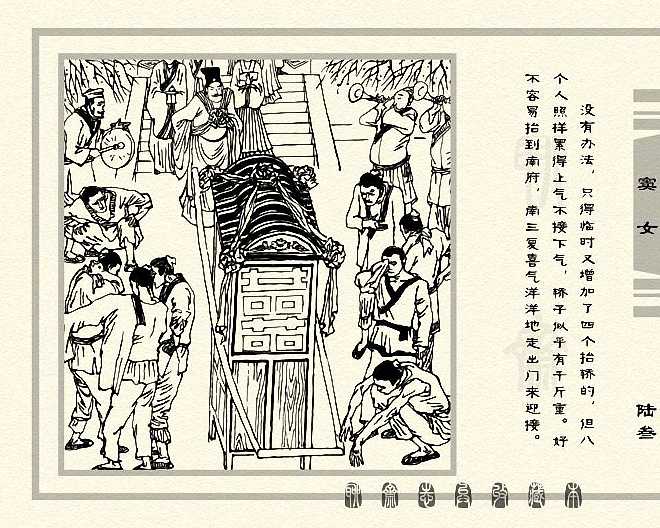 没有办法，只得临时又增加了四个抬轿的，但八
个人照样累得上气不接下气，轿子似乎有千斤重。好
不容易抬到南府，南三复喜气洋洋地走出门来迎接。
窦女
陆叁
囍